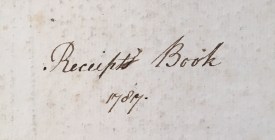 Receipts Book
1787.